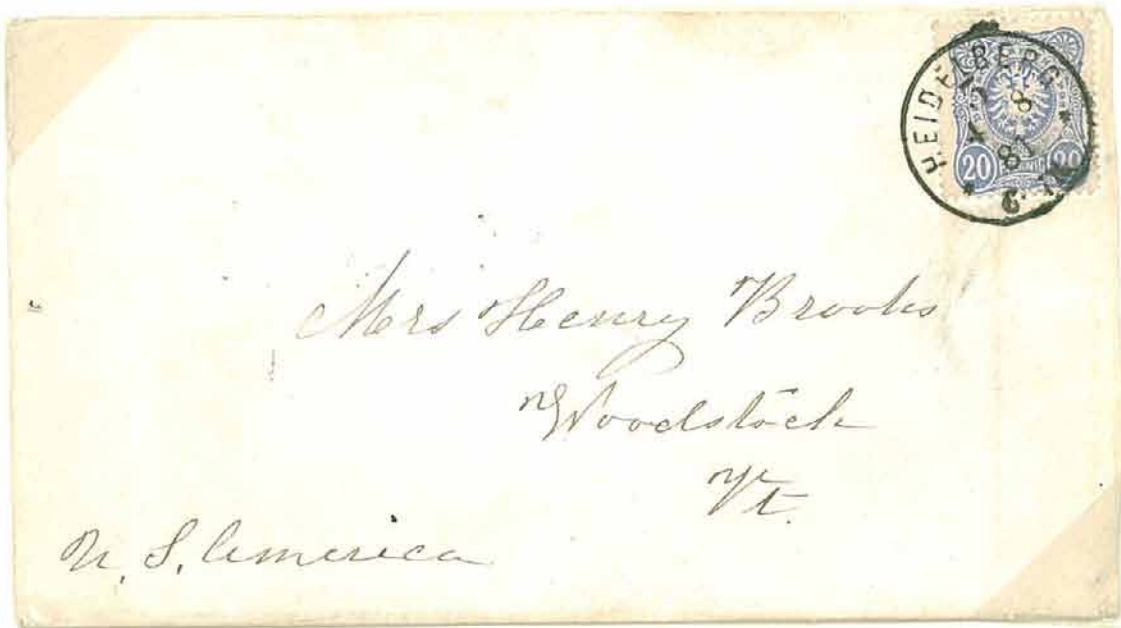 HEIDELBERG
20 PFENNIG 20
Mrs Henry Brooks
Woodstock
Vt.
U. S. America